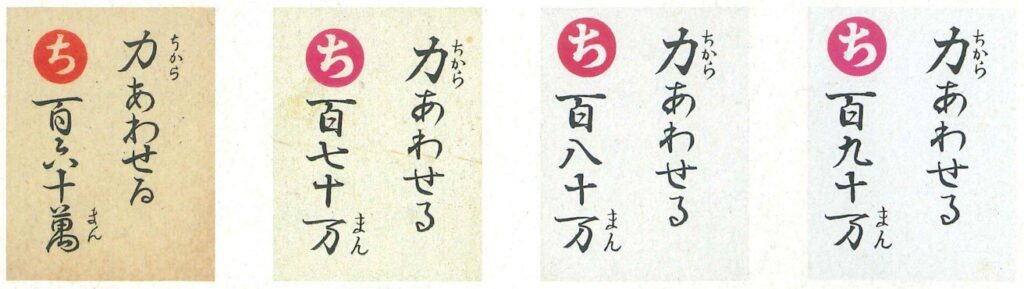 ちから
力あわせる
まん
ち百六十萬
ちから
力あわせる
まん
ち百七十万
ちから
力あわせる
まん
ち百八十万
ちから
力あわせる
まん
ち百九十万